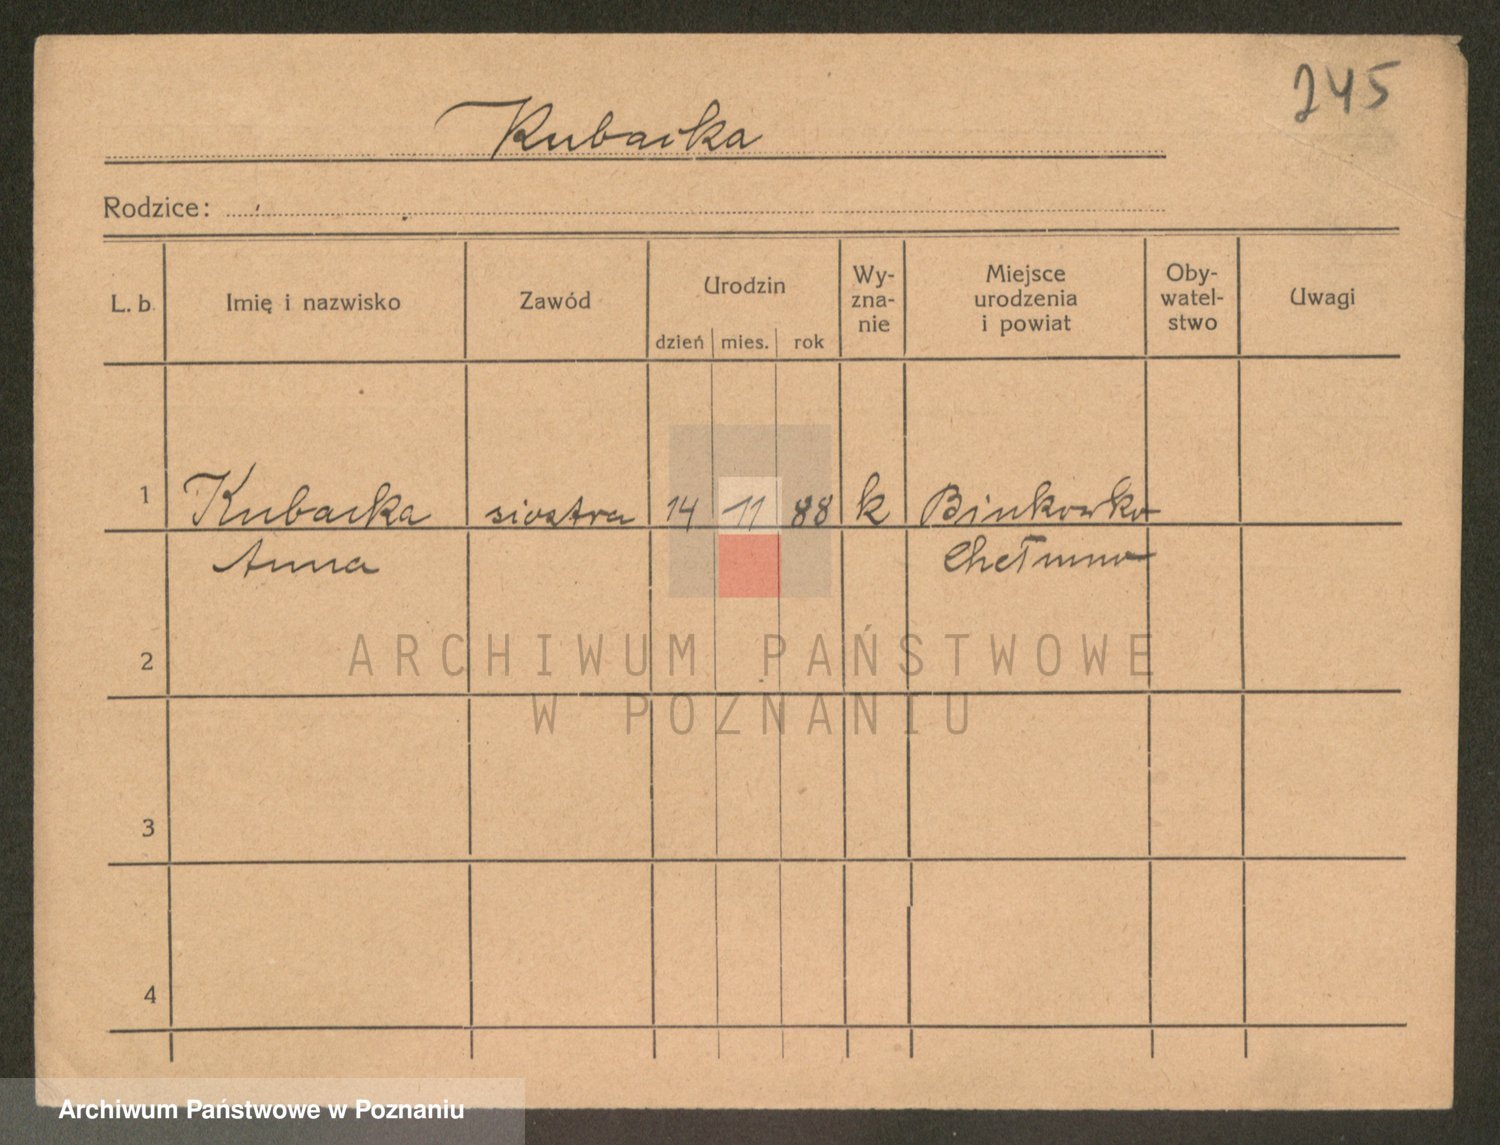 245
Kubacka
Rodzice:
L. b. Imię i nazwisko Zawód Urodzin dzień mies. rok Wy-zna-nie Miejsce urodzenia i powiat Oby-watel-stwo Uwagi
1 Kubacka siostra 14 11 88 k Binkowko
Anna Chełmno
2
ARCHIWUM PAŃSTWOWE
W POZNANIU
3
4
Archiwum Państwowe w Poznaniu